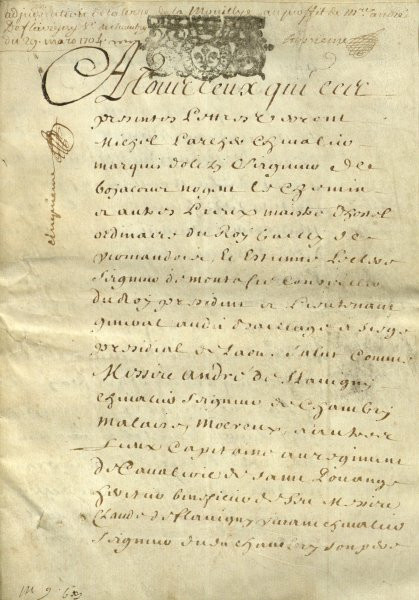 adjudication de la terre de la Minollye au proffit de Mre andré
de flavigny
du 29 mars 1704
cinquieme
A Tous Ceux qui ces
presentes Lettres verront
Michel Larcher chevalier
marquis d'olizy Seigneur de
bojacour nogent le Chemin
et autres Lieux maistre d'hostel
ordinaire du Roy bailly de
vermandois, Et Estienne
Seigneur de montaſie Conseiller
du Roy president et Lieutenant
general audit bailliage et siege
presidial de Laon Salut Comme
Messire André de flavigni
chevalier Seigneur de Chambry
malaise, Moereux, et autres
Lieux Capitaine au regiment
de Cavalerie de Saint Pouange
heritier beneficier de feu Messire
Claude de flavigny vivant chevalier
Seigneur dudit chambery son pere